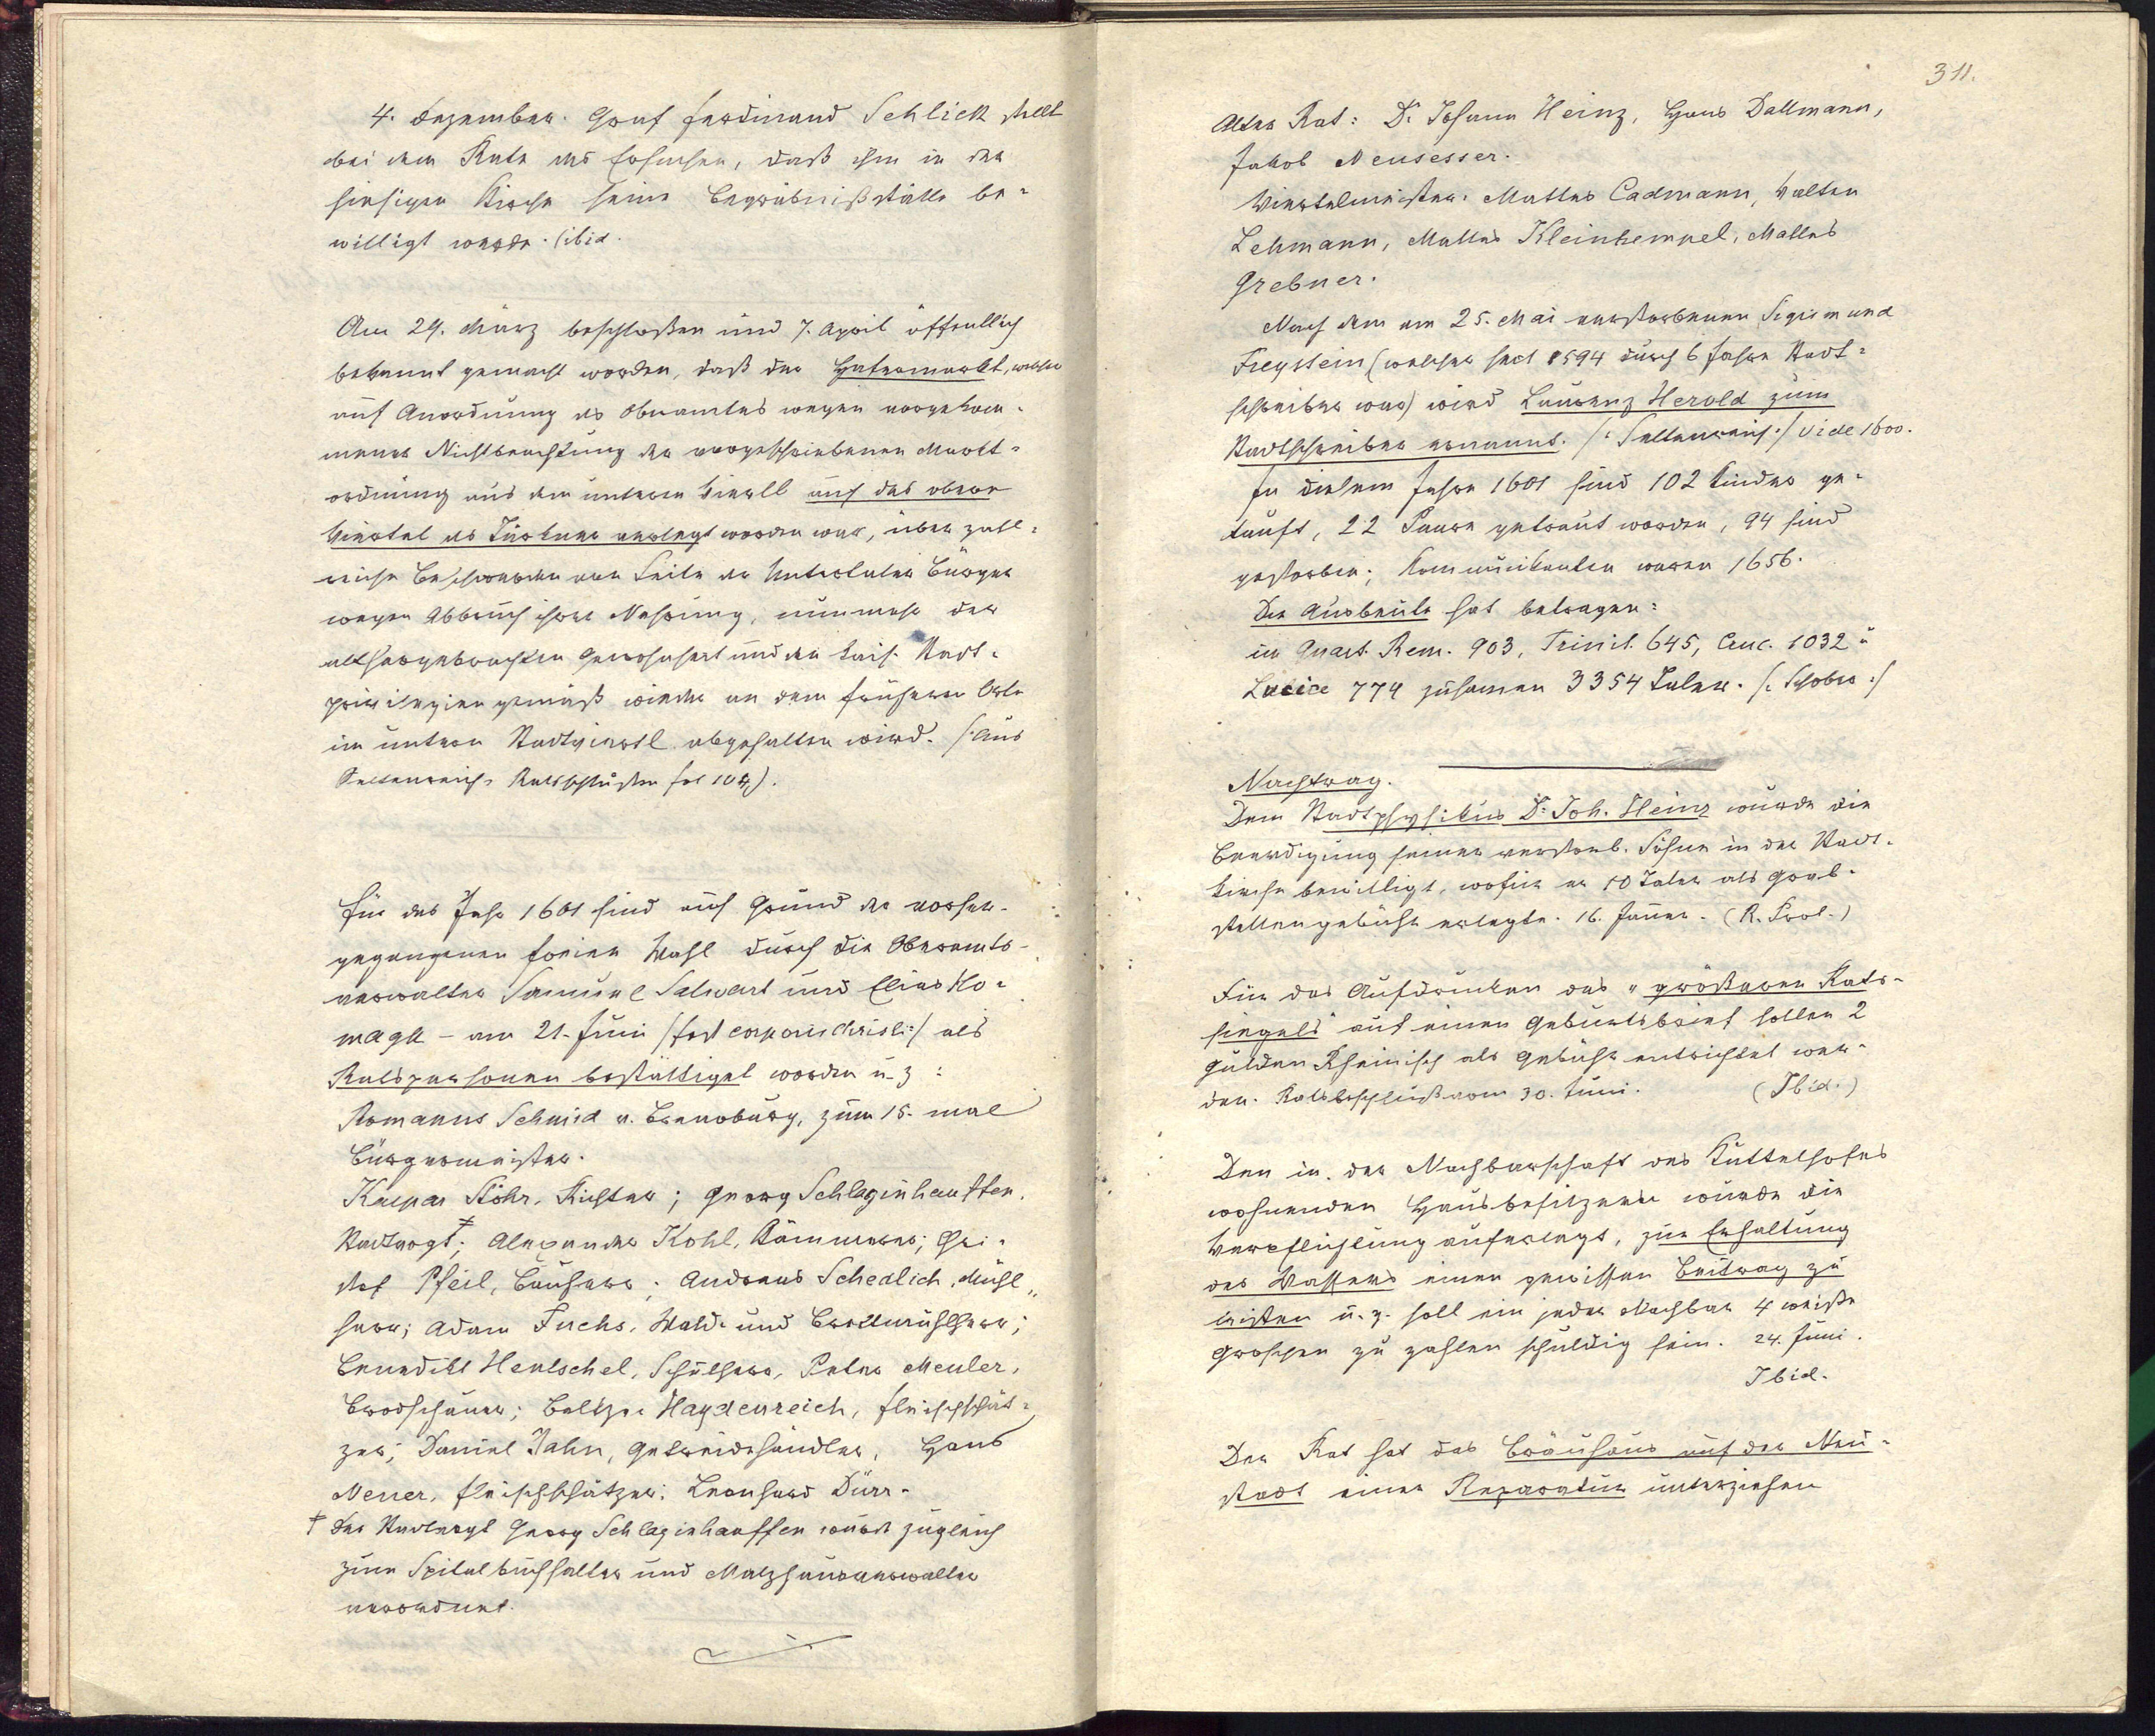 4. Dezember. Graf Ferdinand Schlick stellt
bei dem Rate das Ersuchen, daß ihm in der
hiesigen Kirche seine Begräbnißstätte be-
willigt werde. (ibid.
Am 29. März beschloßen und 7. April öffentlich
bekannt gemacht worden, daß der Hafermarkt, welcher
auf Anordnung des Oberamtes wegen vorgekom-
mener Nichtbeachtung der vorgeschriebenen Markt-
ordnung aus dem unteren Viertl auf das obere
Viertel als Türkner verlegt worden war, über zahl-
reiche Beschwerden von Seite der Untertaler Bürger
wegen Abbruch ihrer Nahrung, nunmehr der
althergebrachten Gewohnheit und den kais. Stadt-
privilegien gemäß wieder an dem früheren Orte
im untern Stadtviertl abgehalten wird. /:aus
Seltenreich Ratsschlüßen fol 104).
Für das Jahr 1601 sind auf Grund der vorher-
gegangenen freien Wahl durch die Oberamts-
verwalter Samuel Salwart und Elias Ko-
magk – am 21. Juni /fest corporis christi:/ als
Ratspersonen bestättiget worden u. z:
Romanus Schmid v. Brannburg, zum 15. mal
Bürgermeister.
Kaspar Stöhr, Richter; Georg Schlaginhauffen,
Stadtvogt †; Alexander Kohl, Kämmerer; Chri-
stof Pfeil, Bauherr; Andreas Schedlich, Mühl-
herr; Adam Fuchs, Wald- und Brettmühlherr;
Benedikt Hentschel, Schulherr, Peter Meuler,
Brodschauer; Baltzer Haydenreich, Fleischschät-
zer; Daniel Jahn, Getreidehändler, Hans
Neuer, Fleischschätzer; Leonhard Dürr.
† Der Stadtvogt Georg Schlaginhauffen wurde zugleich
zum Spitalbuchhalter und Malzhausverwalter
verordnet.
311.
Alter Rat: Dr Johann Heinz, Hans Dallmann,
Jakob Neusesser.
Viertelmeister: Mattes Cadmann, Valten
Lehmann, Mattes Kleinhempel, Mattes
Grebner.
Nach dem am 25. Mai verstorbenen Sigismund
Freystein (welcher seit 1594 durch 6 Jahre Stadt-
schreiber war) wird Laurenz Herold zum
Stadtschreiber ernannt. /:Seltenreich:/ Vide 1600.
In diesem Jahre 1601 sind 102 Kinder ge-
tauft, 22 Paare getraut worden, 94 sind
gestorben; Kommunikanten waren 1656.
Die Ausbeute hat betragen:
im Quart. Rem. 903, Trinit. 645, Cruc. 1032 u
Luciae 774 zusamen 3354 Taler. /:Schober:/
Nachtrag.
Dem Stadtphysikus Dr. Joh. Heinz wurde die
Beerdigung seiner verstorb. Söhne in der Stadt-
kirche bewilligt, wofür er 10 Taler als Grab-
stellengebühr erlegte. 16. Jänner. (R. Prot.)
Für das Aufdrucken des „größeren Rats-
siegels" auf einen Geburtsbrief sollen 2
Gulden Rheinisch als Gebühr entrichtet wer-
den. Ratsbeschluß vom 30. Juni. (Ibid.)
Den in der Nachbarschaft des Kuttelhofes
wohnenden Hausbesitzern wurde die
Verpflichtung auferlegt, zur Erhaltung
des Wassers einen gewissen Beitrag zu
leisten u. z. soll ein jeder Nachbar 4 weiße
Groschen zu zahlen schuldig sein. 24. Juni.
Ibid.
Der Rat hat das Bräuhaus auf der Neu-
stadt einer Reparatur unterziehen